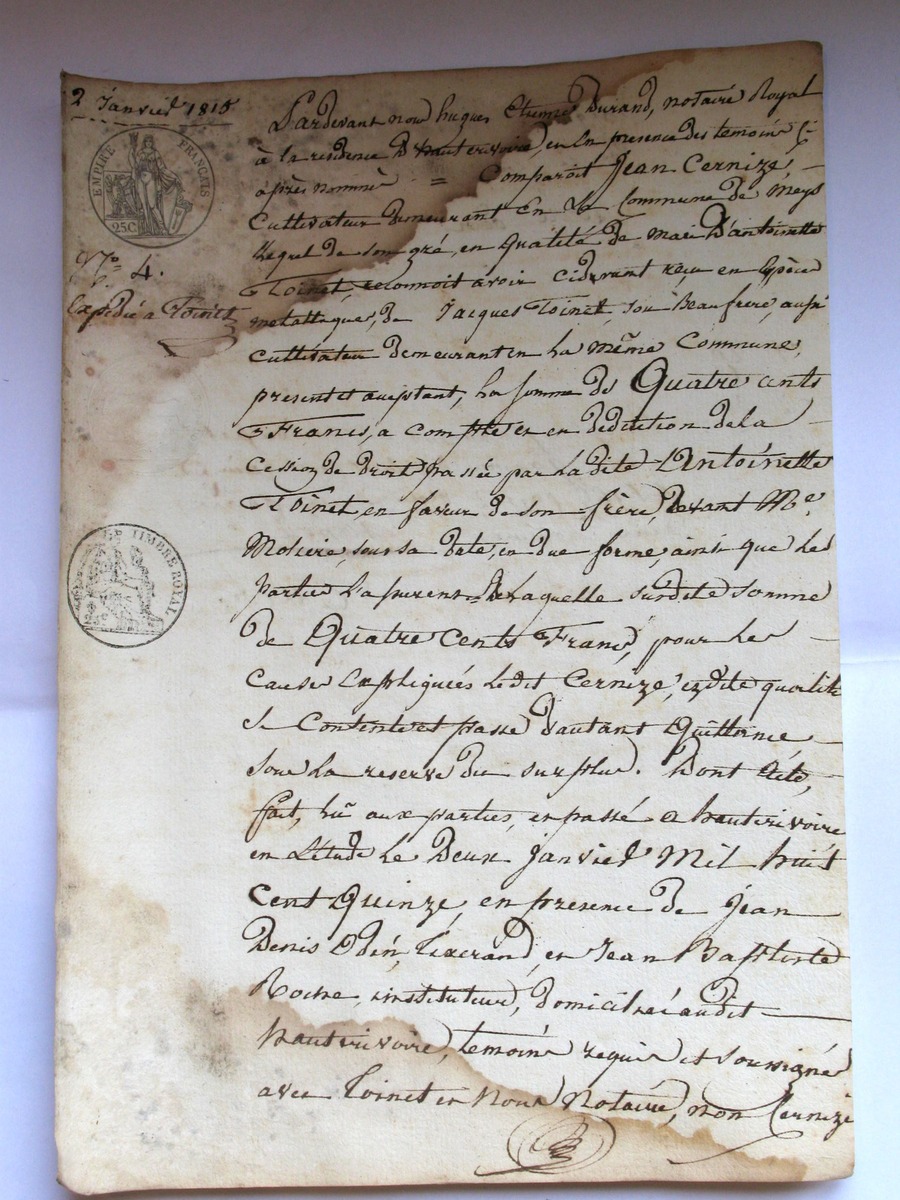 2 Janvier 1815
EMPIRE FRANÇAIS
25C
N.º 4.
Expédié a Toinet
TIMBRE ROYAL
Pardevant nous hugues Etienne Durand, notaire Royal
à la residence D'hauterivoire, en en presence des temoins
après nommés = Comparoit Jean Cernize,
Cultivateur demeurant En La Commune de Meys
Lequel de son gré, en qualité de mari D'antoinette
Toinet, reconnoit avoir cidevant reçu en Espèce
metalliques, de Jacques Toinet, son Beaufrere, aussi
cultivateur demeurant en La même Commune,
present et acceptant, La somme de Quatre cents
Francs, a compte et en deduction de la
Cession de droit passée par Ladite Antoinette
Toinet, en faveur de son frère, devant M.e
Moliere, sous sa date, en due forme, ainsi que Les
parties L'assurent = De Laquelle susdite somme
de Quatre Cents Francs, pour Les
causes Expliquées Ledit Cernize, endite qualité
se Contente et passe D'autant Quittance
sous La reserve du surplus. Dont acte,
fait, Lu aux parties, et passé a hauterivoire
en L'etude Le Deux Janvier Mil huit
cent Quinze, en presence de Jean
Denis Odin, Tixerand, et Jean Baptiste
Roche, instituteur, domiciliés audit
hauterivoire, temoins requis et soussignés
avec Toinet et Nous Notaire, non Cernize